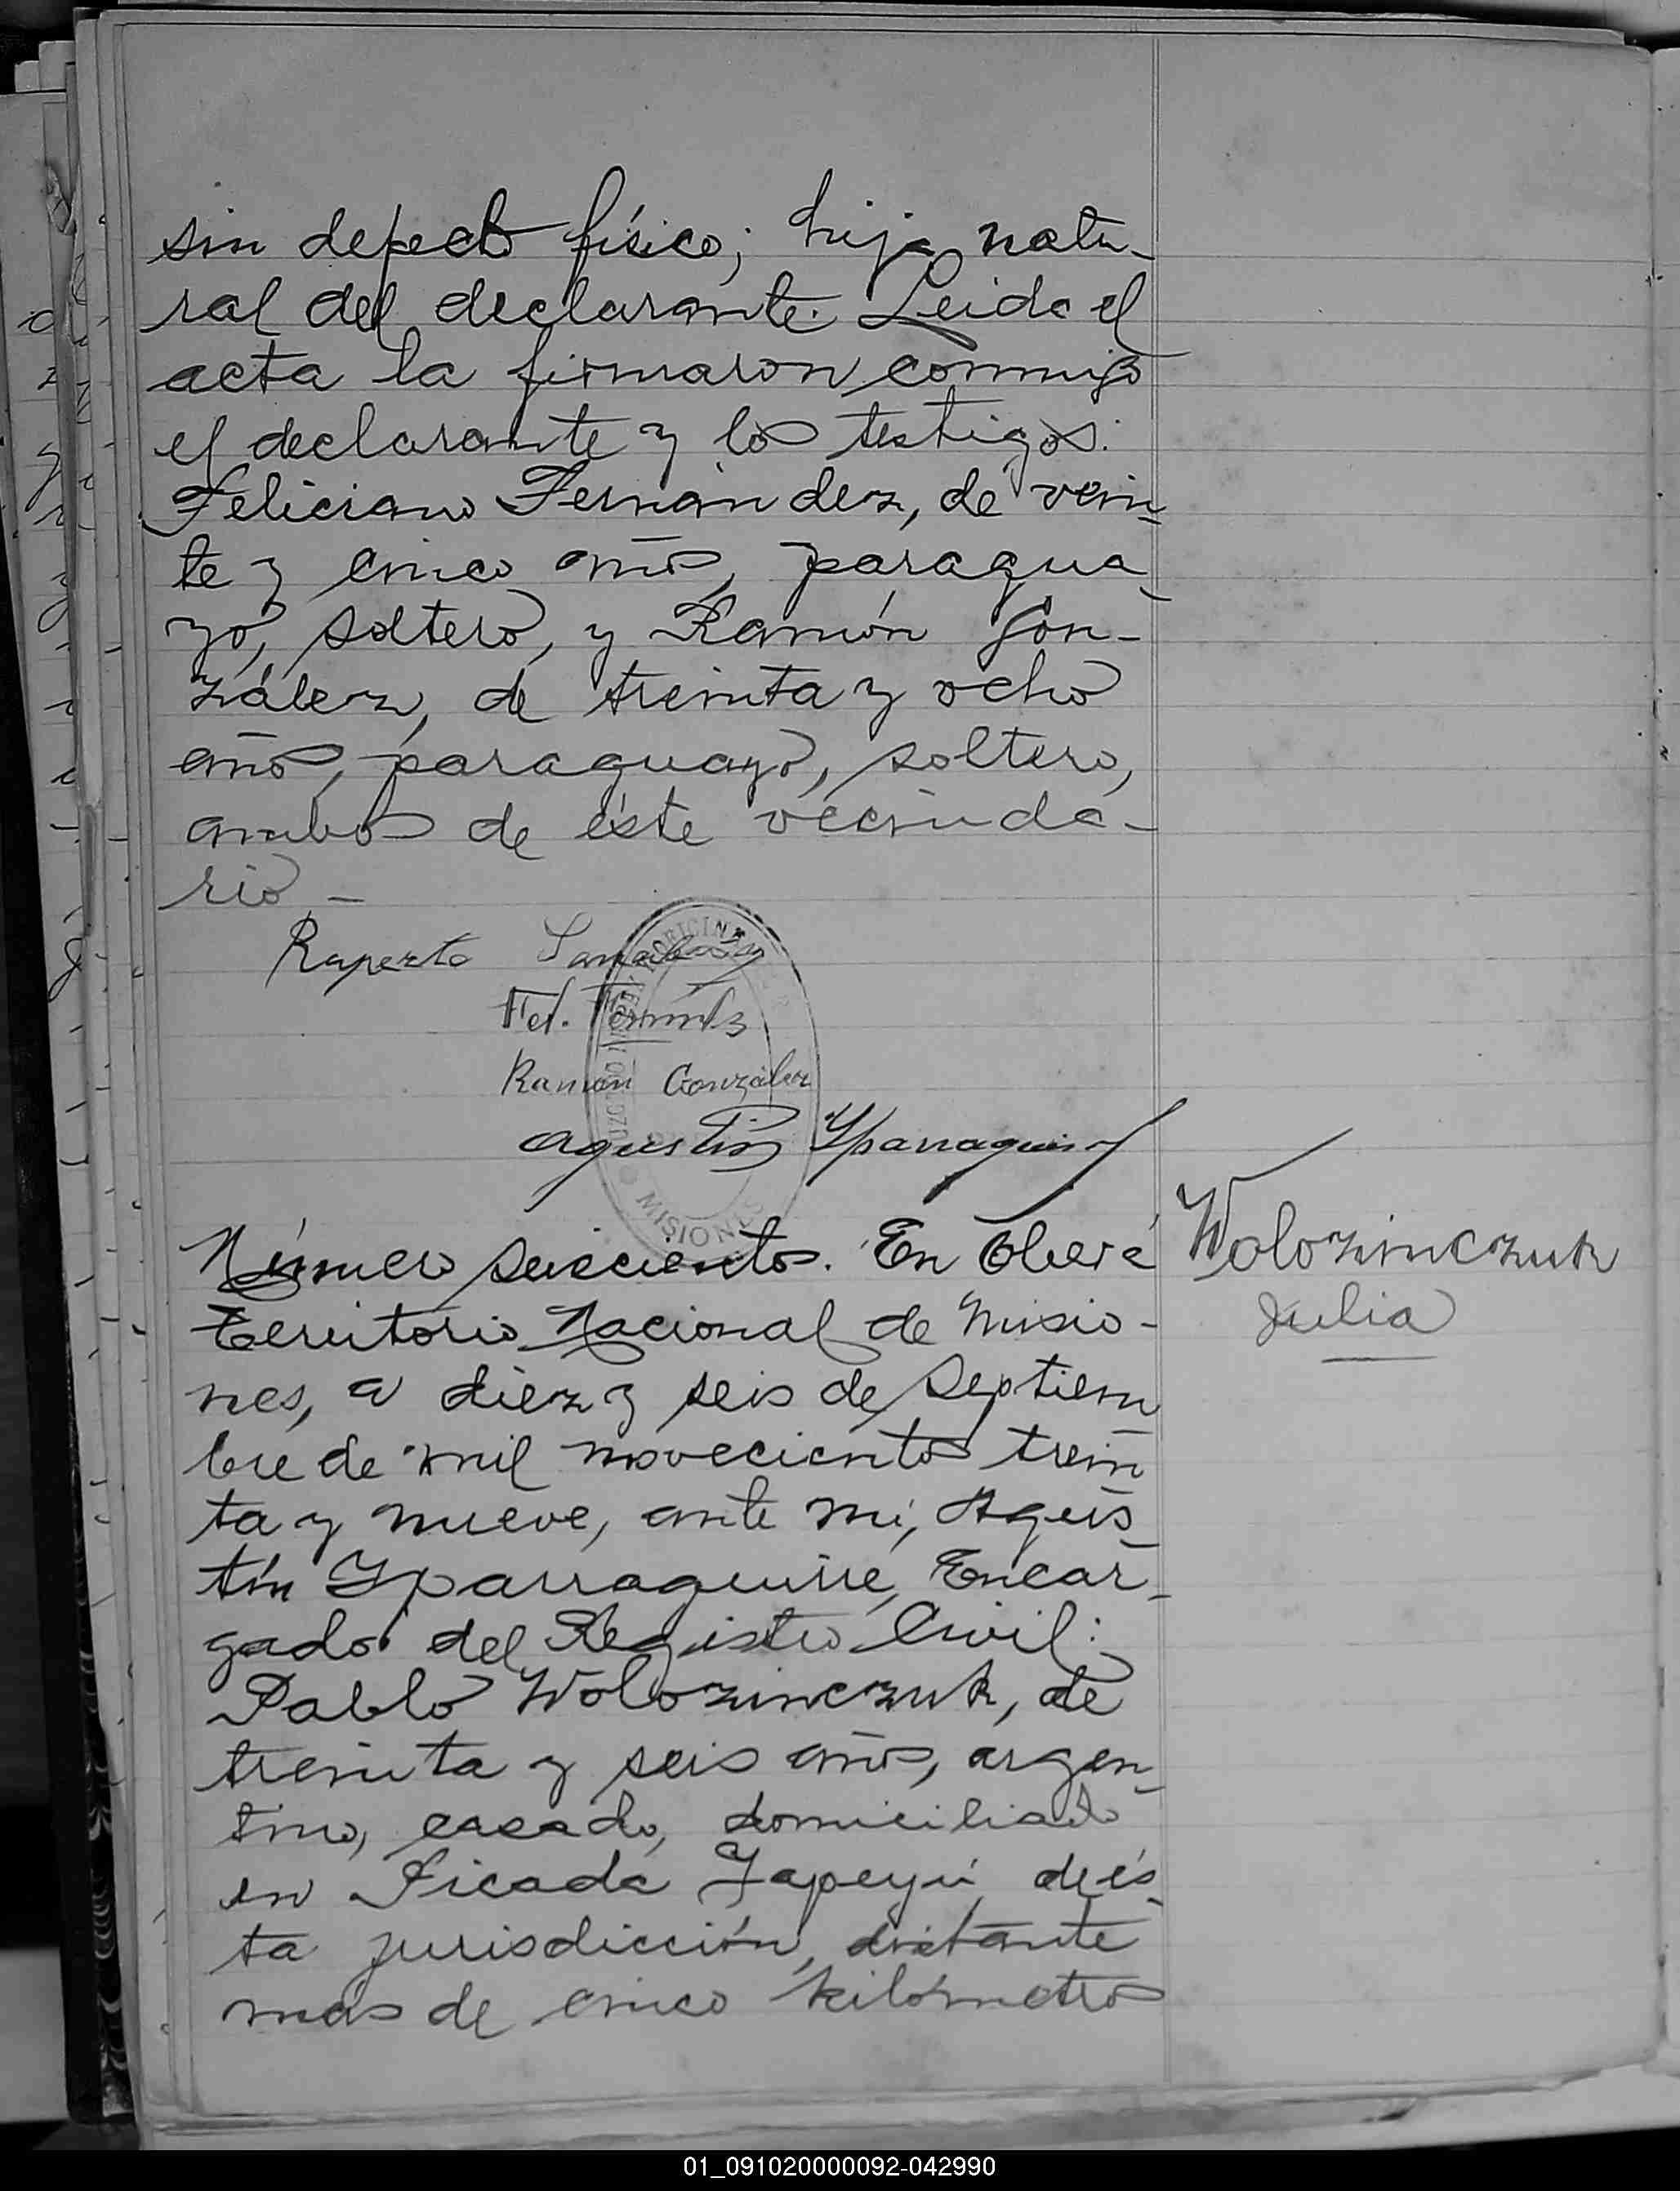 sin defecto físico; hija natu-
ral del declarante. Leida el
acta la firmaron conmigo
el declarante y los testigos:
Feliciano Fernández, de vein-
te y cinco años, paragua-
yo, soltero, y Ramón Gon-
zález, de treinta y ocho
años, paraguayo, soltero,
ambos de éste vecinda-
rio –
Ruperto
Fel.
Ramón González
Agustín Yparraguirre
MISIONES
Número seiscientos. En Oberá
Territorio Nacional de Misio-
nes, a diez y seis de Septiem
bre de mil novecientos trein
ta y nueve, ante mí, Agus-
tín Yparraguirre, Encar-
gado del Registro Civil:
Pablo Wolozinczuk, de
treinta y seis años, argen-
tino, casado, domiciliado
en Picada Yapeyú, de és-
ta jurisdicción, distante
mas de cinco kilómetros
Wolozinczuk
Julia
01_091020000092-042990